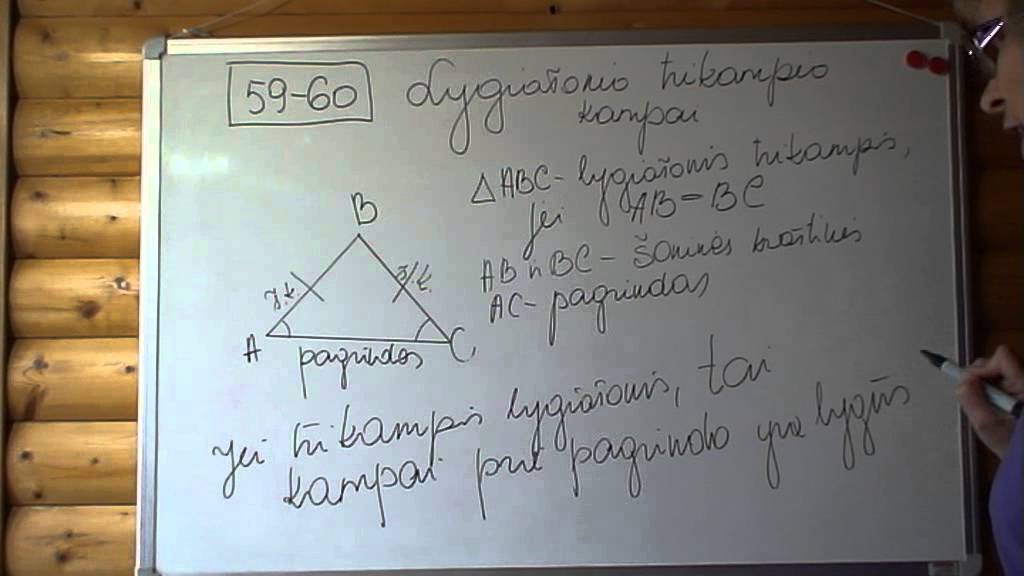 59-60 Lygiašonio trikampio
kampai
△ABC - lygiašonis trikampis,
jei AB = BC
AB ir BC - šoninės kraštinės
AC - pagrindas
B
š.k.
š.k.
A
C
pagrindas
jei trikampis lygiašonis, tai
kampai prie pagrindo yra lygūs